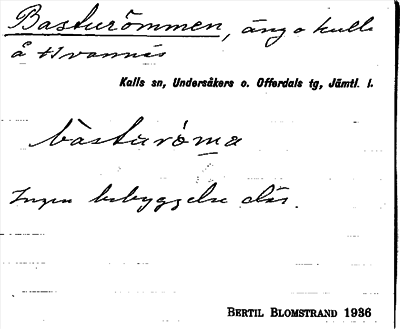 Basturömmen, äng o kulle
å Hvannis
Kalls sn, Undersåkers o. Offerdals tg, Jämtl. l.
bàsturóma
Ingen bebyggelse där.
BERTIL BLOMSTRAND 1936